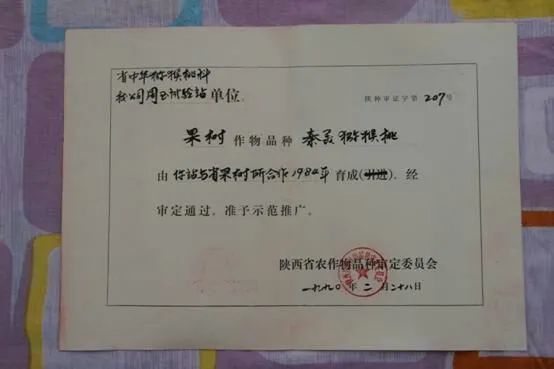 省中华猕猴桃科
技公司周至试验站单位.
陕种审证字第207号
果树作物品种 秦美猕猴桃
由你站与省果树所合作1984年育成(引进),经
审定通过,准予示范推广。
陕西省农作物品种审定委员会
一九九〇年二月二十八日